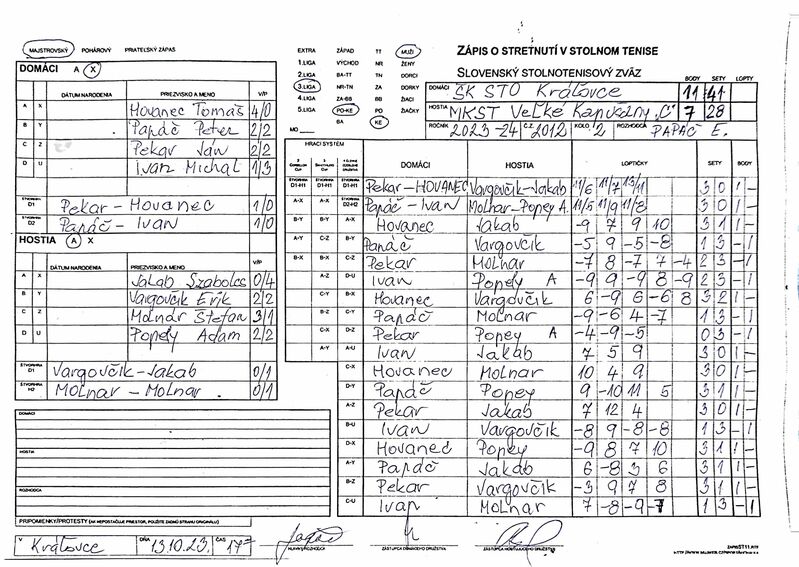 MAJSTROVSKÝ POHÁROVÝ PRIATEĽSKÝ ZÁPAS
EXTRA ZÁPAD TT MUŽI
1.LIGA VÝCHOD NR ŽENY
2.LIGA BA-TT TN DORCI
3.LIGA NR-TN ZA DORKY
4.LIGA ZA-BB BB ŽIACI
5.LIGA PO-KE PO ŽIAČKY
BA KE
MO
ZÁPIS O STRETNUTÍ V STOLNOM TENISE
SLOVENSKÝ STOLNOTENISOVÝ ZVÄZ
BODY SETY LOPTY
DOMÁCI ŠK STO Kráľovce 11 41
HOSTIA MKST Veľké Kapušany "C" 7 28
ROČNÍK 2023-24 Č.Z. 2012 KOLO 2 ROZHODCA PAPÁČ E.
DOMÁCI A X
DÁTUM NARODENIA PRIEZVISKO A MENO V/P
A X Hovanec Tomáš 4/0
B Y Papáč Peter 2/2
C Z Pekar Ján 2/2
D U Ivan Michal 1/3
ŠTVORHRA D1 Pekar - Hovanec 1/0
ŠTVORHRA D2 Papáč - Ivan 1/0
HOSTIA A X
DÁTUM NARODENIA PRIEZVISKO A MENO V/P
A X Jakab Szabolcs 0/4
B Y Vargovčik Erik 2/2
C Z Molnár Štefan 3/1
D U Popey Adam 2/2
ŠTVORHRA D1 Vargovčik - Jakab 0/1
ŠTVORHRA H2 Molnar - Molnar 0/1
DOMÁCI
HOSTIA
ROZHODCA
PRIPOMIENKY/PROTESTY (AK NEPOSTAČUJE PRIESTOR, POUŽITE ZADNÚ STRANU ORIGINÁLU)
V Kráľovce DŇA 13.10.23. ČAS 17
HLAVNÝ ROZHODCA ZÁSTUPCA DOMÁCEHO DRUŽSTVA ZÁSTUPCA HOSŤUJÚCEHO DRUŽSTVA
HRACÍ SYSTÉM
DOMÁCI HOSTIA LOPTIČKY SETY BODY
ŠTVORHRA D1-H1 ŠTVORHRA D1-H1 ŠTVORHRA D1-H1 Pekar-HOVANEC Vargovčik-Jakab 11/6 11/7 13/11 3 0 1 -
A-X A-X ŠTVORHRA D2-H2 Papáč - Ivan Molnar-Popey A. 11/5 11/9 11/8 3 0 1 -
B-Y B-Y A-X Hovanec Jakab -9 7 9 10 3 1 1 -
A-Y C-Z B-Y Papáč Vargovčik -5 9 -5 -8 1 3 - 1
B-X B-X C-Z Pekar Molnar -7 8 -7 7 -4 2 3 - 1
A-Z D-U Ivan Popey A -9 9 -9 8 -9 2 3 - 1
C-Y B-X Hovanec Vargovčik 6 -9 6 -6 8 3 2 1 -
B-Z C-Y Papáč Molnar -9 -6 4 -7 1 3 - 1
C-X D-Z Pekar Popey A -4 -9 -5 0 3 - 1
A-Y A-U Ivan Jakab 7 5 9 3 0 1 -
C-X Hovanec Molnar 10 4 9 3 0 1 -
D-Y Papáč Popey 9 -10 11 5 3 1 1 -
A-Z Pekar Jakab 7 12 4 3 0 1 -
B-U Ivan Vargovčik -8 9 -8 -8 1 3 - 1
D-X Hovanec Popey -9 8 7 10 3 1 1 -
A-Y Papáč Jakab 6 -8 3 6 3 1 1 -
B-Z Pekar Vargovčik -3 9 7 8 3 1 1 -
C-U Ivan Molnar 7 -8 -9 -7 1 3 - 1